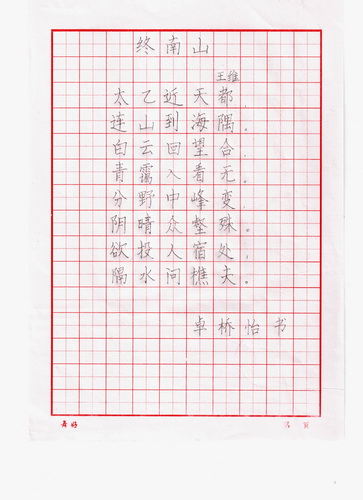 终南山
王维
太乙近天都,
连山到海隅。
白云回望合,
青霭入看无。
分野中峰变,
阴晴众壑殊。
欲投人宿处,
隔水问樵夫。
卓桥怡书